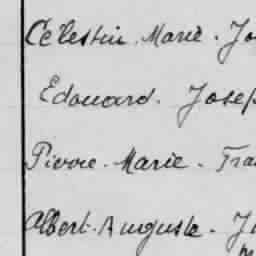 Célestin. Marie. Jo
Edouard. Josep
Pierre. Marie. Fra
Albert. Auguste. J